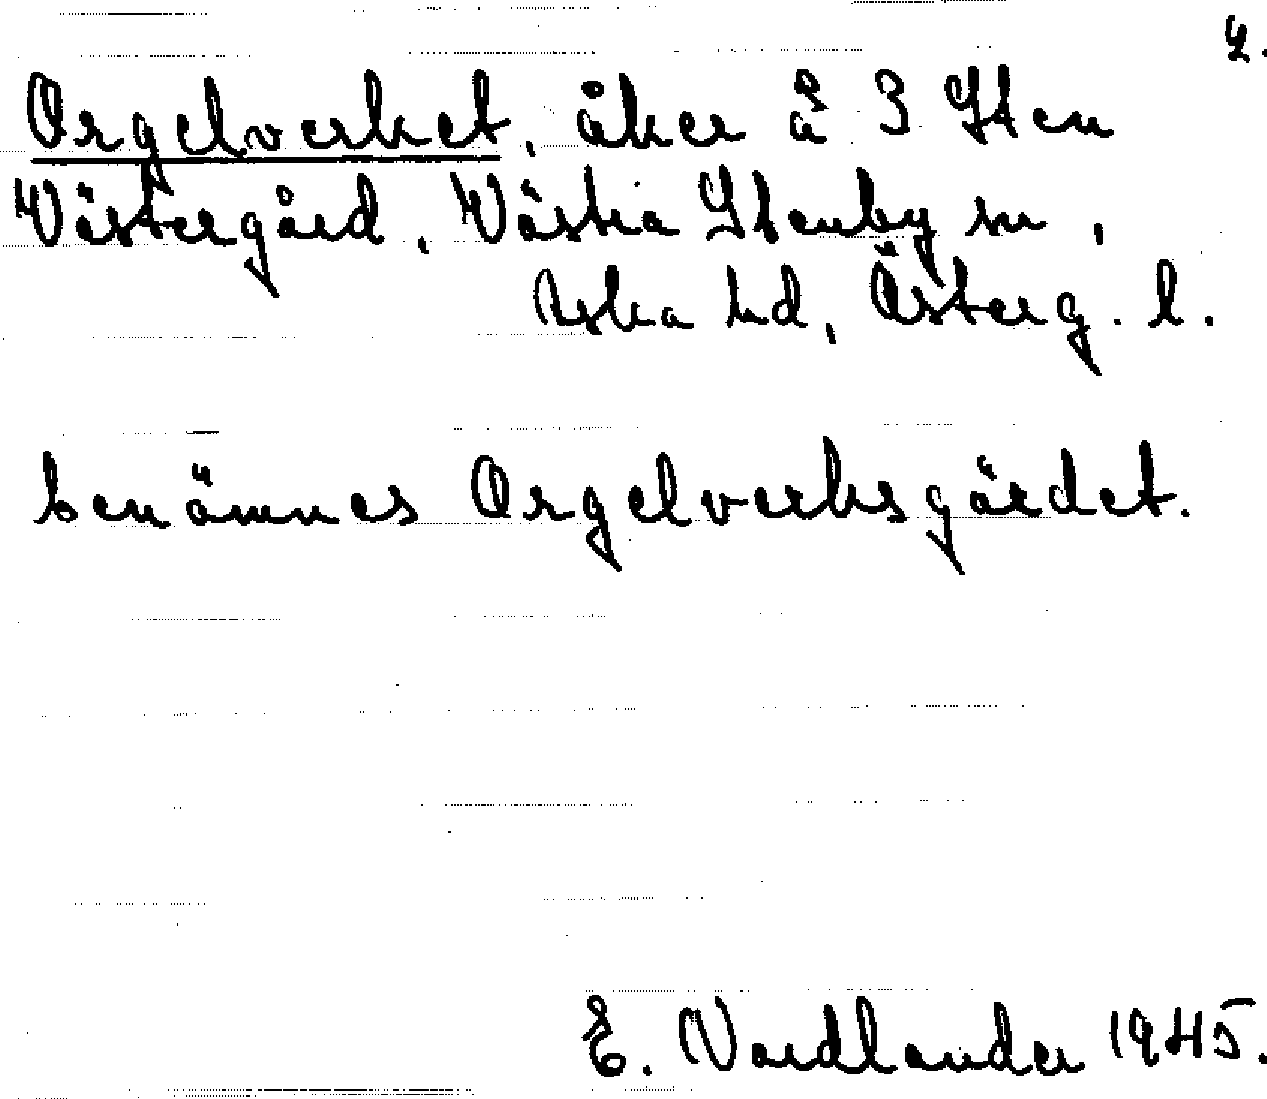 2.
Orgelverket, åker å 3 Sten
Västergård, Västra Stenby sn,
Aska hd, Österg. l.
benämnes Orgelverksgärdet.
E. Nordlander 1945.